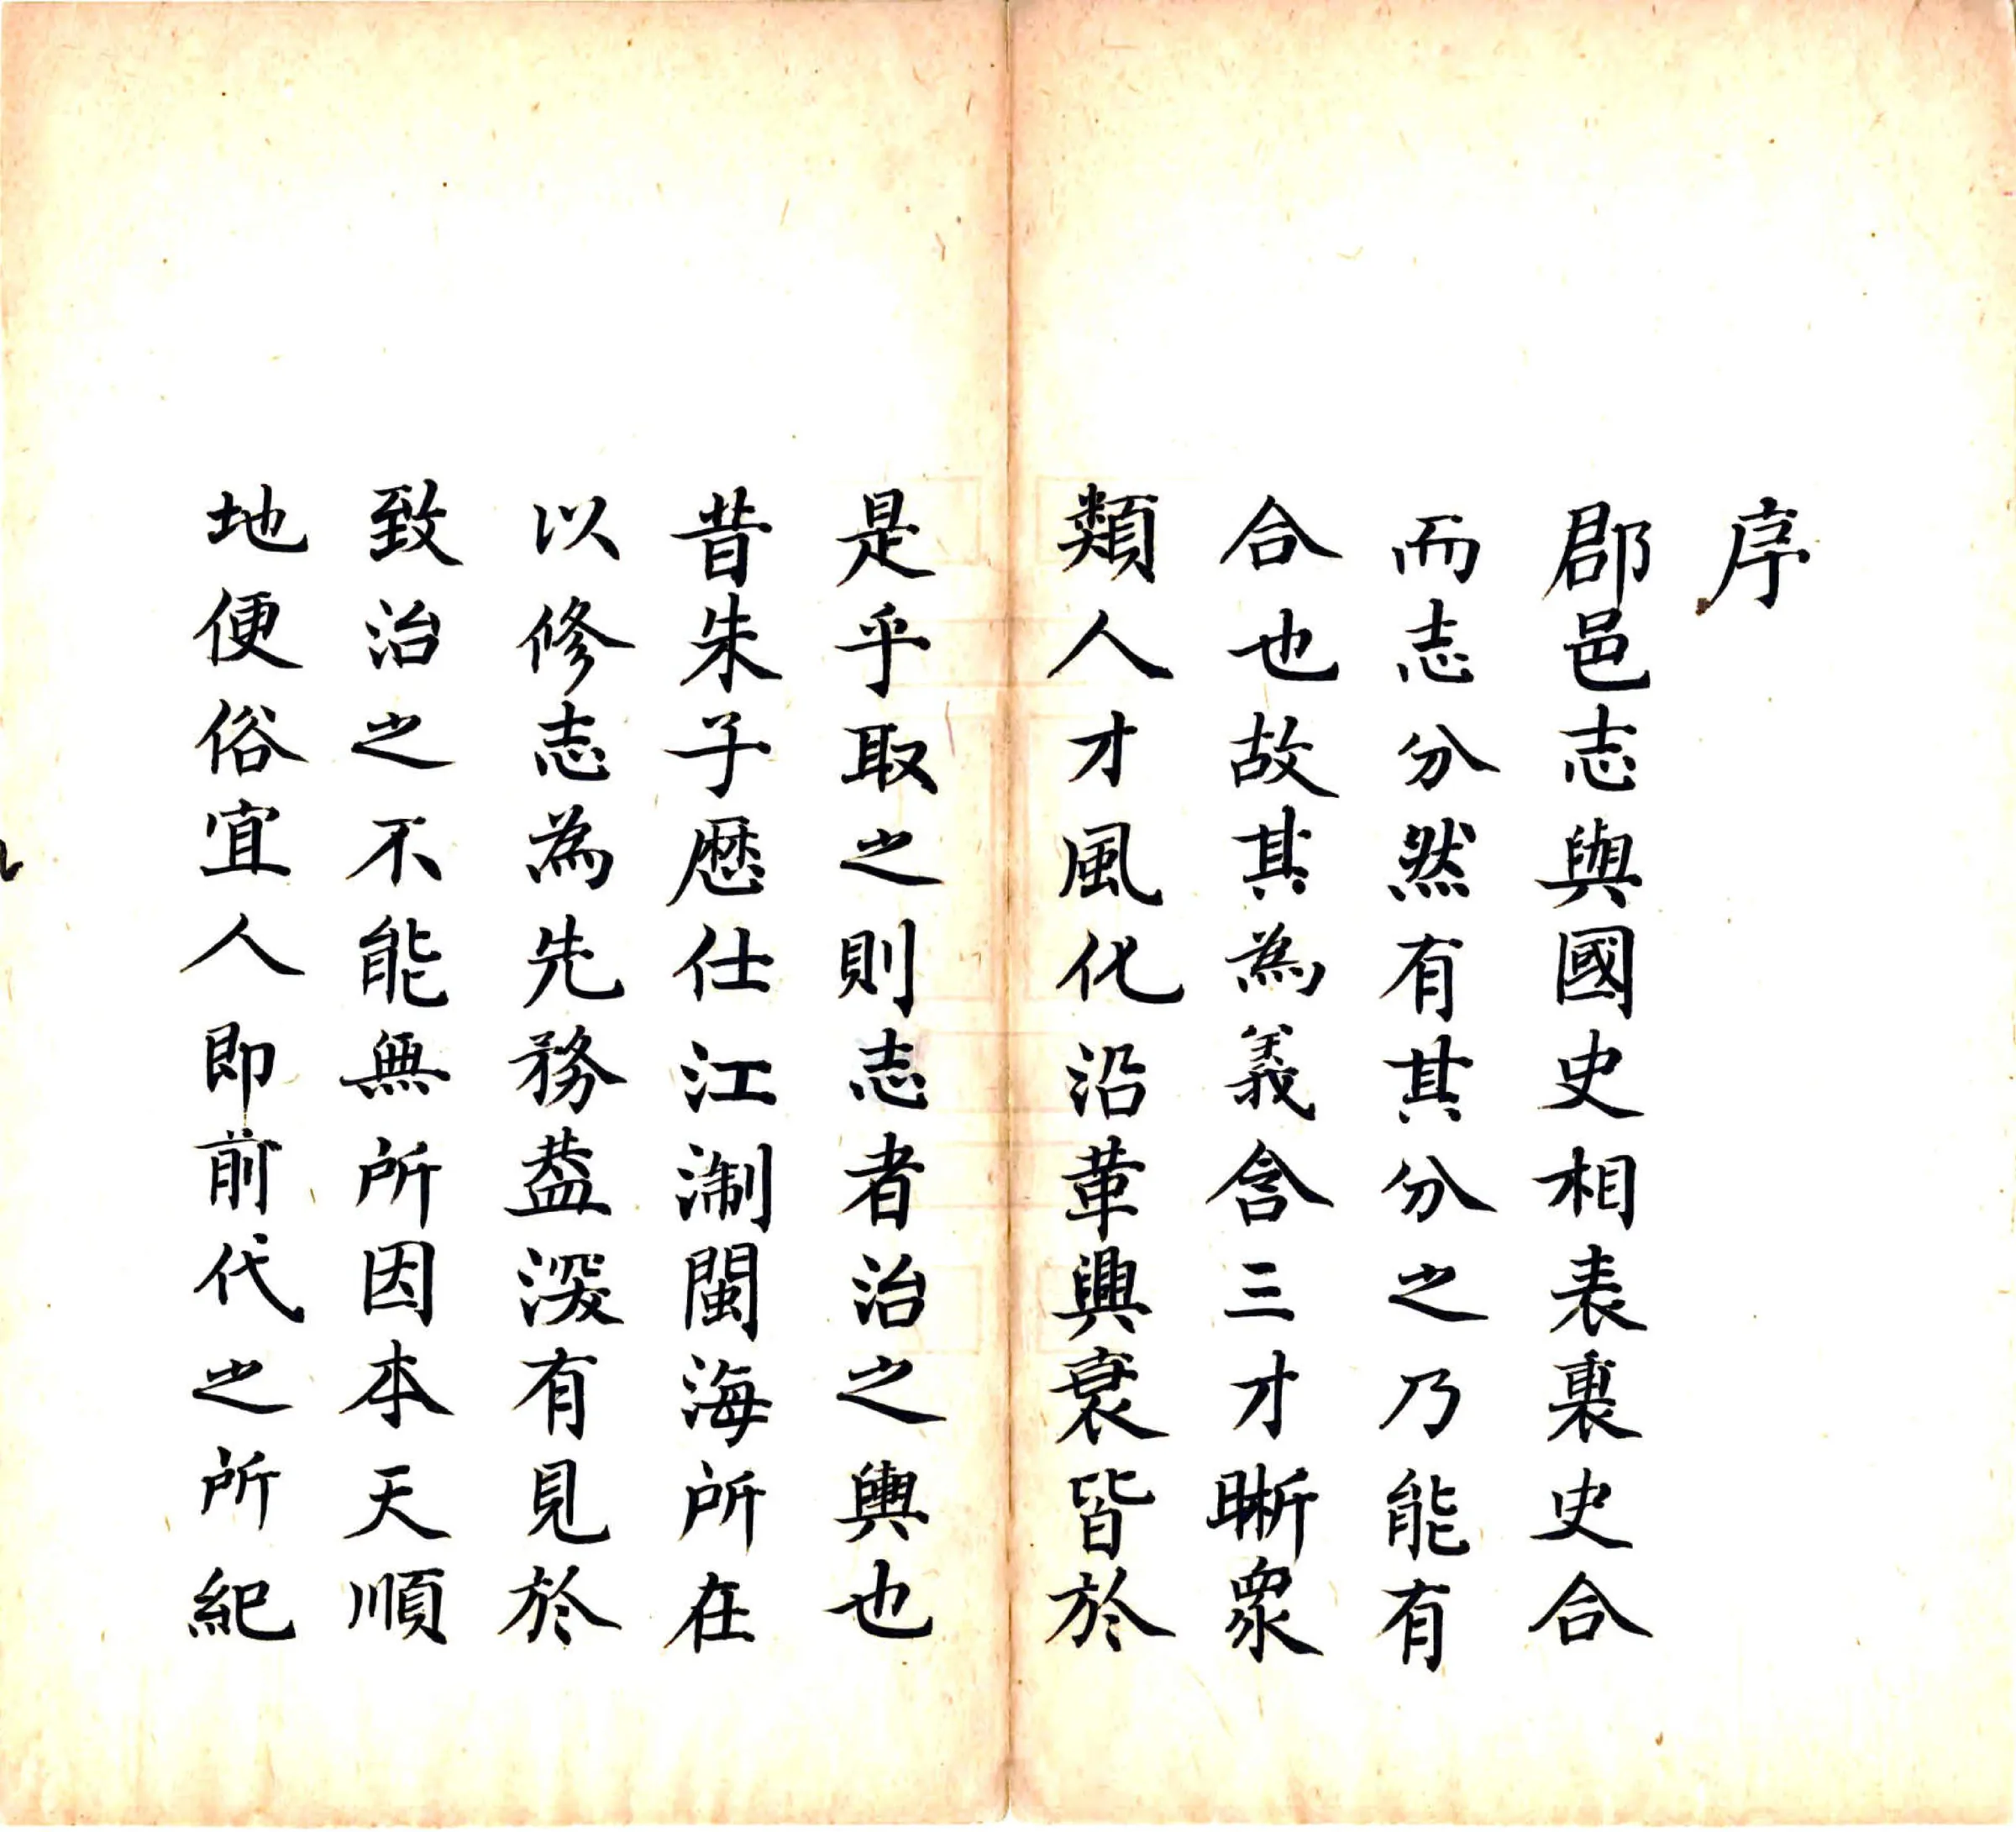 序
郡邑志與國史相表裏史合
而志分然有其分之乃能有
合也故其為義含三才晰衆
類人才風化沿革興衰皆於
是乎取之則志者治之輿也
昔朱子歷仕江淛閩海所在
以修志為先務葢深有見於
致治之不能無所因本天順
地便俗宜人即前代之所紀